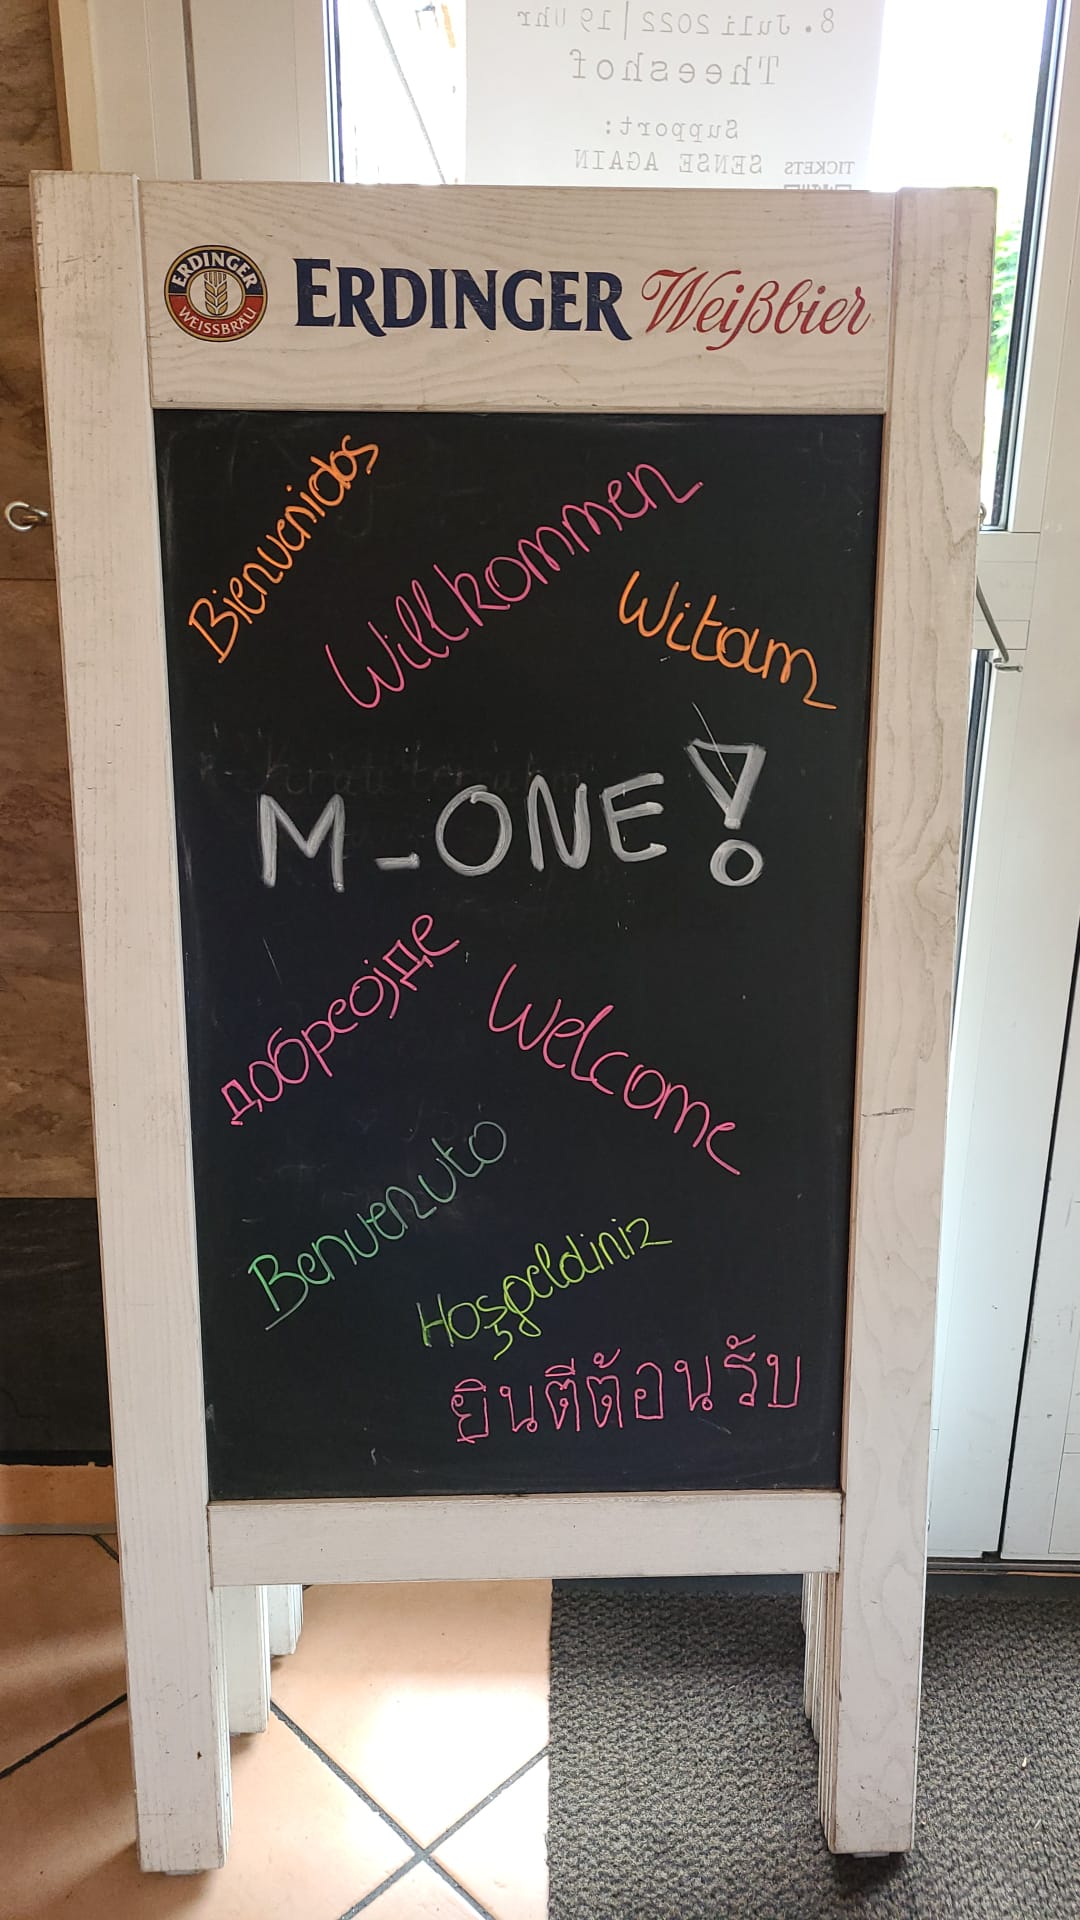 8. Juli 2022 | 19 Uhr
Theeshof
Support:
SENSE AGAIN
TICKETS
ERDINGER
WEISSBRÄU
ERDINGER Weißbier
Bienvenidos
Willkommen
Witam
M-ONE!
добреојде
Welcome
Benvenuto
Hoşgeldiniz
ยินดีต้อนรับ